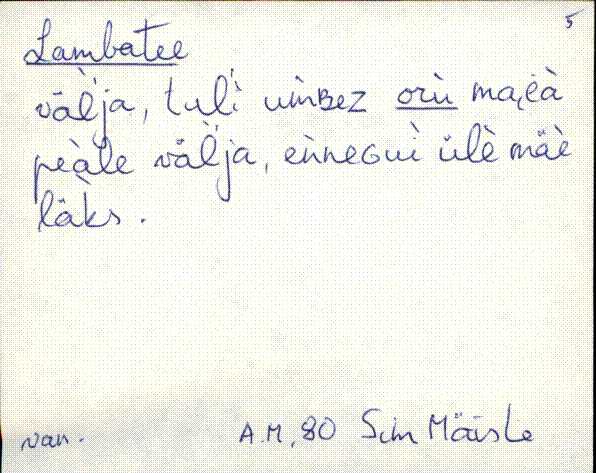 5
Lambatee
väl'ja, tul'i uìnʙez orù maɛ̯à
peàle väl'ja, eǹneɢuì ülè mäè
läks.
van.
A.M, 80 Sim Mäisle